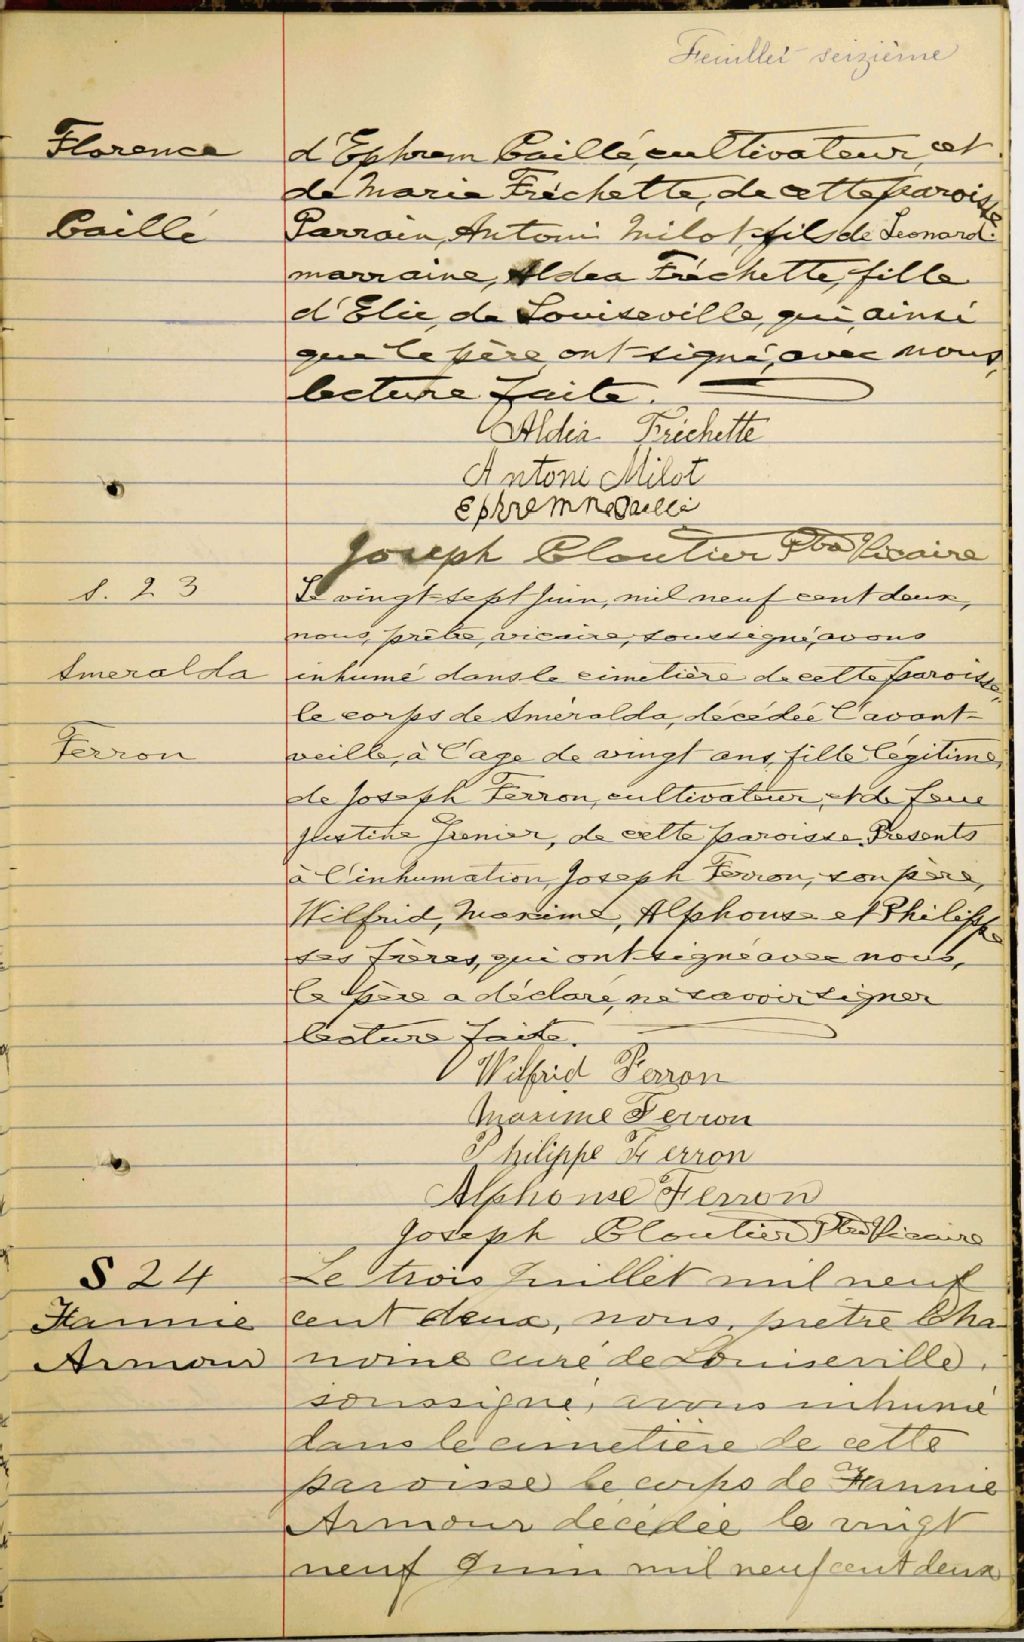 Feuillet seizième
Florence
Caillé
d'Ephrem Caillé, cultivateur, et
de Marie Fréchette, de cette paroisse
Parrain, Antoni Milot, fils de Leonard.
marraine, Aldea Fréchette, fille
d'Elie, de Louiseville, qui, ainsi
que le père, ont signé, avec nous,
lecture faite.
Aldéa Fréchette
Antoni Milot
Ephremne Caillé
Joseph Cloutier Ptre Vicaire
S. 23
Smeralda
Ferron
Le vingt-sept Juin, mil neuf cent deux,
nous, prêtre, vicaire, soussigné, avons
inhumé dans le cimetière de cette paroisse,
le corps de Sméralda, décédée l'avant-
veille, à l'age de vingt ans, fille légitime,
de Joseph Ferron, cultivateur, et de feue
Justine Grenier, de cette paroisse. Presents
à l'inhumation, Joseph Ferron, son père,
Wilfrid, Maxime, Alphonse et Philippe
ses frères, qui ont signé avec nous,
le père a déclaré, ne savoir signer
lecture faite.
Wilfrid Ferron
Maxime Ferron
Philippe Ferron
Alphonse Ferron
Joseph Cloutier Ptre Vicaire
S 24
Fannie
Armour
Le trois Juillet mil neuf
cent deux, nous, prêtre Cha
noine curé de Louiseville,
soussigné, avons inhumé
dans le cimetière de cette
paroisse le corps de Fannie
Armour décédée le vingt
neuf Juin mil neuf cent deux